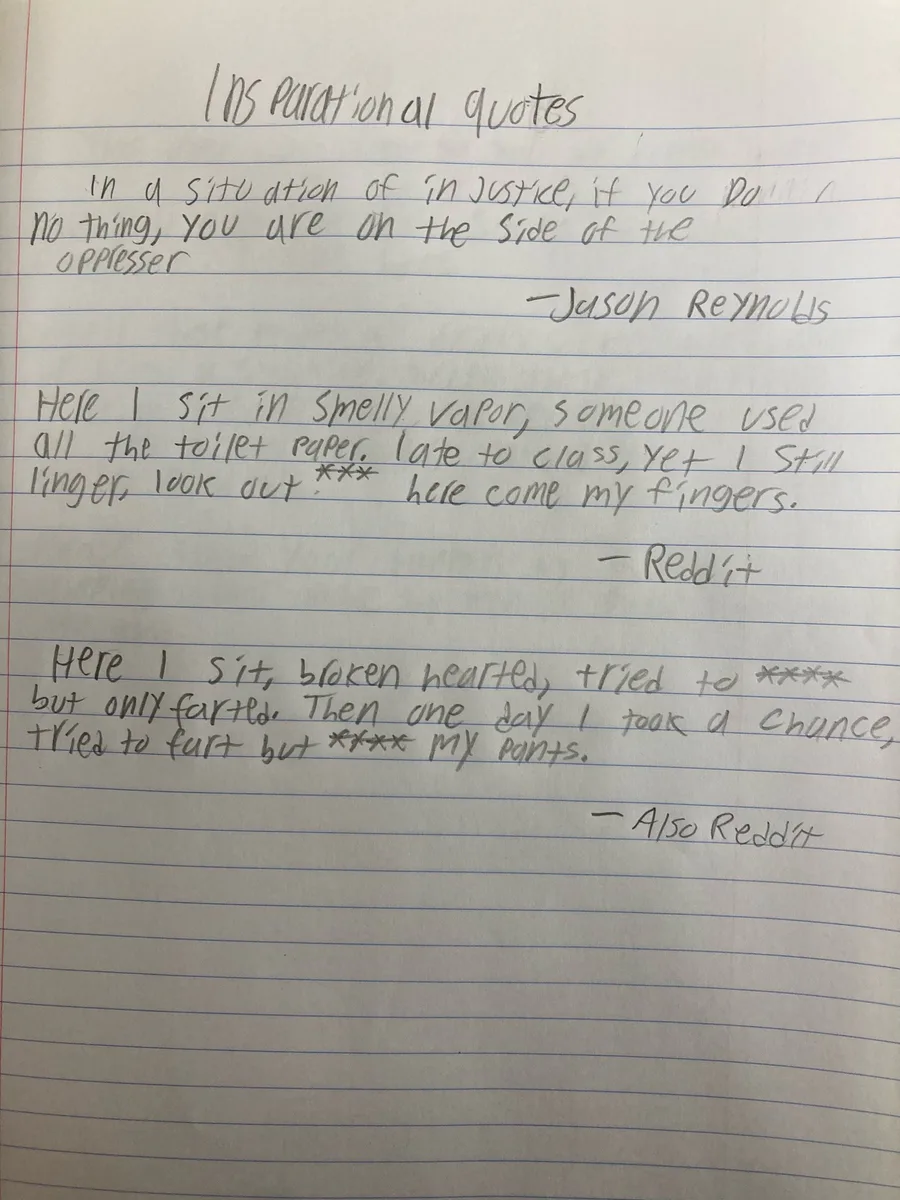 Insparational quotes
In a situation of injustice, if you Do
nothing, you are on the side of the
oppresser
- Jason Reynolds
Here I sit in smelly vapor, someone used
all the toilet paper. late to class, yet I still
linger, look out *** here come my fingers.
- Reddit
Here I sit, broken hearted, tried to ****
but only farted. Then one day I took a chance,
tried to fart but **** my pants.
- Also Reddit